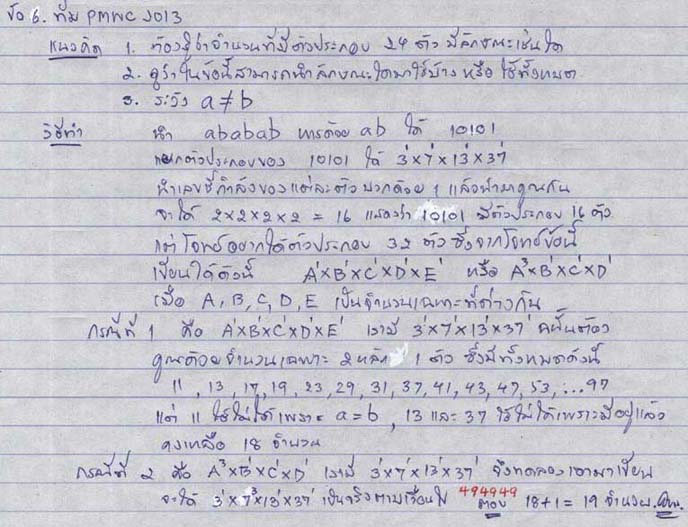 ข้อ 6. ทีม PMWC 2013
แนวคิด 1. ต้องรู้ว่าจำนวนที่มีตัวประกอบ 24 ตัว มีลักษณะเช่นใด
2. ดูว่าในข้อนี้สามารถนำลักษณะใดมาใช้บ้าง หรือ ใช้ทั้งหมด
3. ระวัง a≠b
วิธีทำ นำ ababab หารด้วย ab ได้ 10101
แยกตัวประกอบของ 10101 ได้ 3¹×7¹×13¹×37¹
นำเลขชี้กำลังของแต่ละตัว บวกด้วย 1 แล้วนำมาคูณกัน
จะได้ 2×2×2×2 = 16 แสดงว่า 10101 มีตัวประกอบ 16 ตัว
แต่โจทย์อยากได้ตัวประกอบ 32 ตัว ซึ่งจากโจทย์ข้อนี้
เขียนได้ดังนี้ A¹×B¹×C¹×D¹×E¹ หรือ A³×B¹×C¹×D¹
เมื่อ A, B, C, D, E เป็นจำนวนเฉพาะที่ต่างกัน
กรณีที่ 1 คือ A¹×B¹×C¹×D¹×E¹ เรามี 3¹×7¹×13¹×37¹ ฉะนั้นต้อง
คูณด้วยจำนวนเฉพาะ 2 หลัก 1 ตัว ซึ่งมีทั้งหมดดังนี้
11, 13, 17, 19, 23, 29, 31, 37, 41, 43, 47, 53, ...97
แต่ 11 ใช้ไม่ได้เพราะ a=b, 13 และ 37 ใช้ไม่ได้เพราะมีอยู่แล้ว
คงเหลือ 18 จำนวน
กรณีที่ 2 คือ A³×B¹×C¹×D¹ เรามี 3¹×7¹×13¹×37¹ จึงทดลองเอามาเขียน
จะได้ 3¹×7³×13¹×37¹ เป็นจริงตามเงื่อนไข 494949 ตอบ 18+1 = 19 จำนวน.